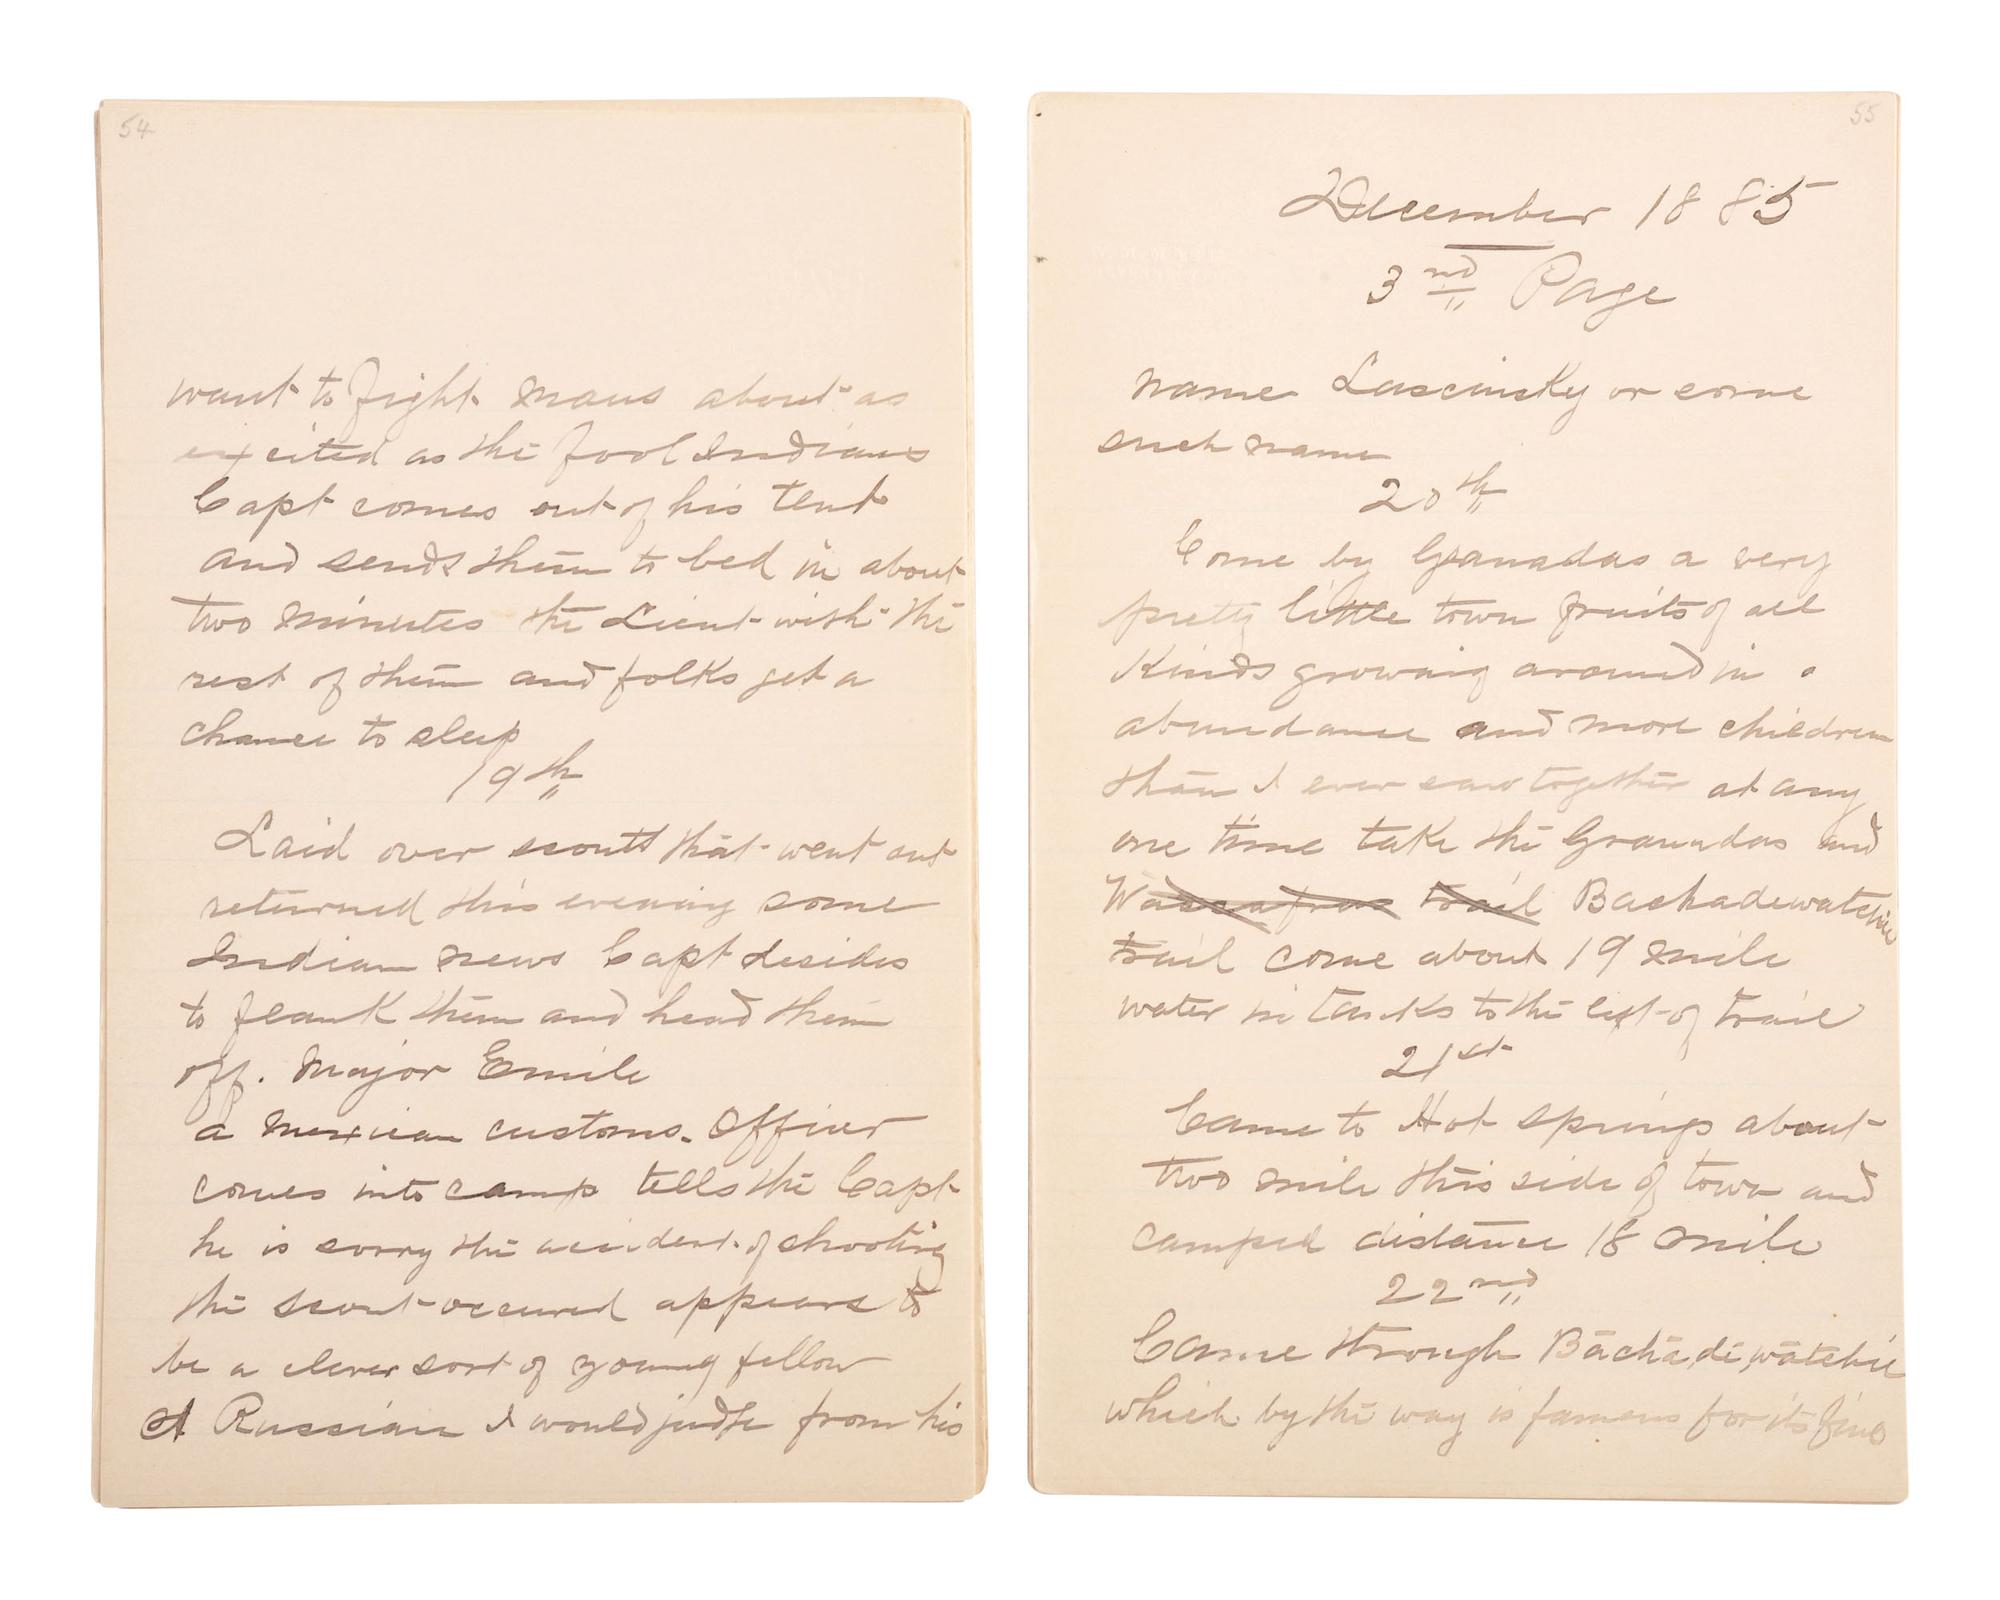 54
want to fight Maus about as
excited as the fool Indians
Capt comes out of his tent
and sends them to bed in about
two minutes the Lieut with the
rest of them and folks get a
chance to sleep
19th
Laid over scouts that went out
returned this evening some
Indian news Capt desides
to flank them and head them
off. Major Emile
a mexican customs. Officer
comes into camp tells the Capt
he is sorry the accident of shooting
the scout occured appears to
be a clever sort of young fellow
A Russian I would judge from his
55
December 1885
3nd Page
name Lascinsky or some
such name
20th
Come by Granadas a very
pretty little town fruits of all
Kinds growing around in a
abundance and more children
than I ever saw together at any
one time take the Granadas and
trail Bachadewatchie
trail come about 19 mile
water in tanks to the left of trail
21st
Came to Hot springs about
two mile this side of town and
camped distance 18 mile
22nd
Came through Bachadewatchie
which by the way is famous for its fine